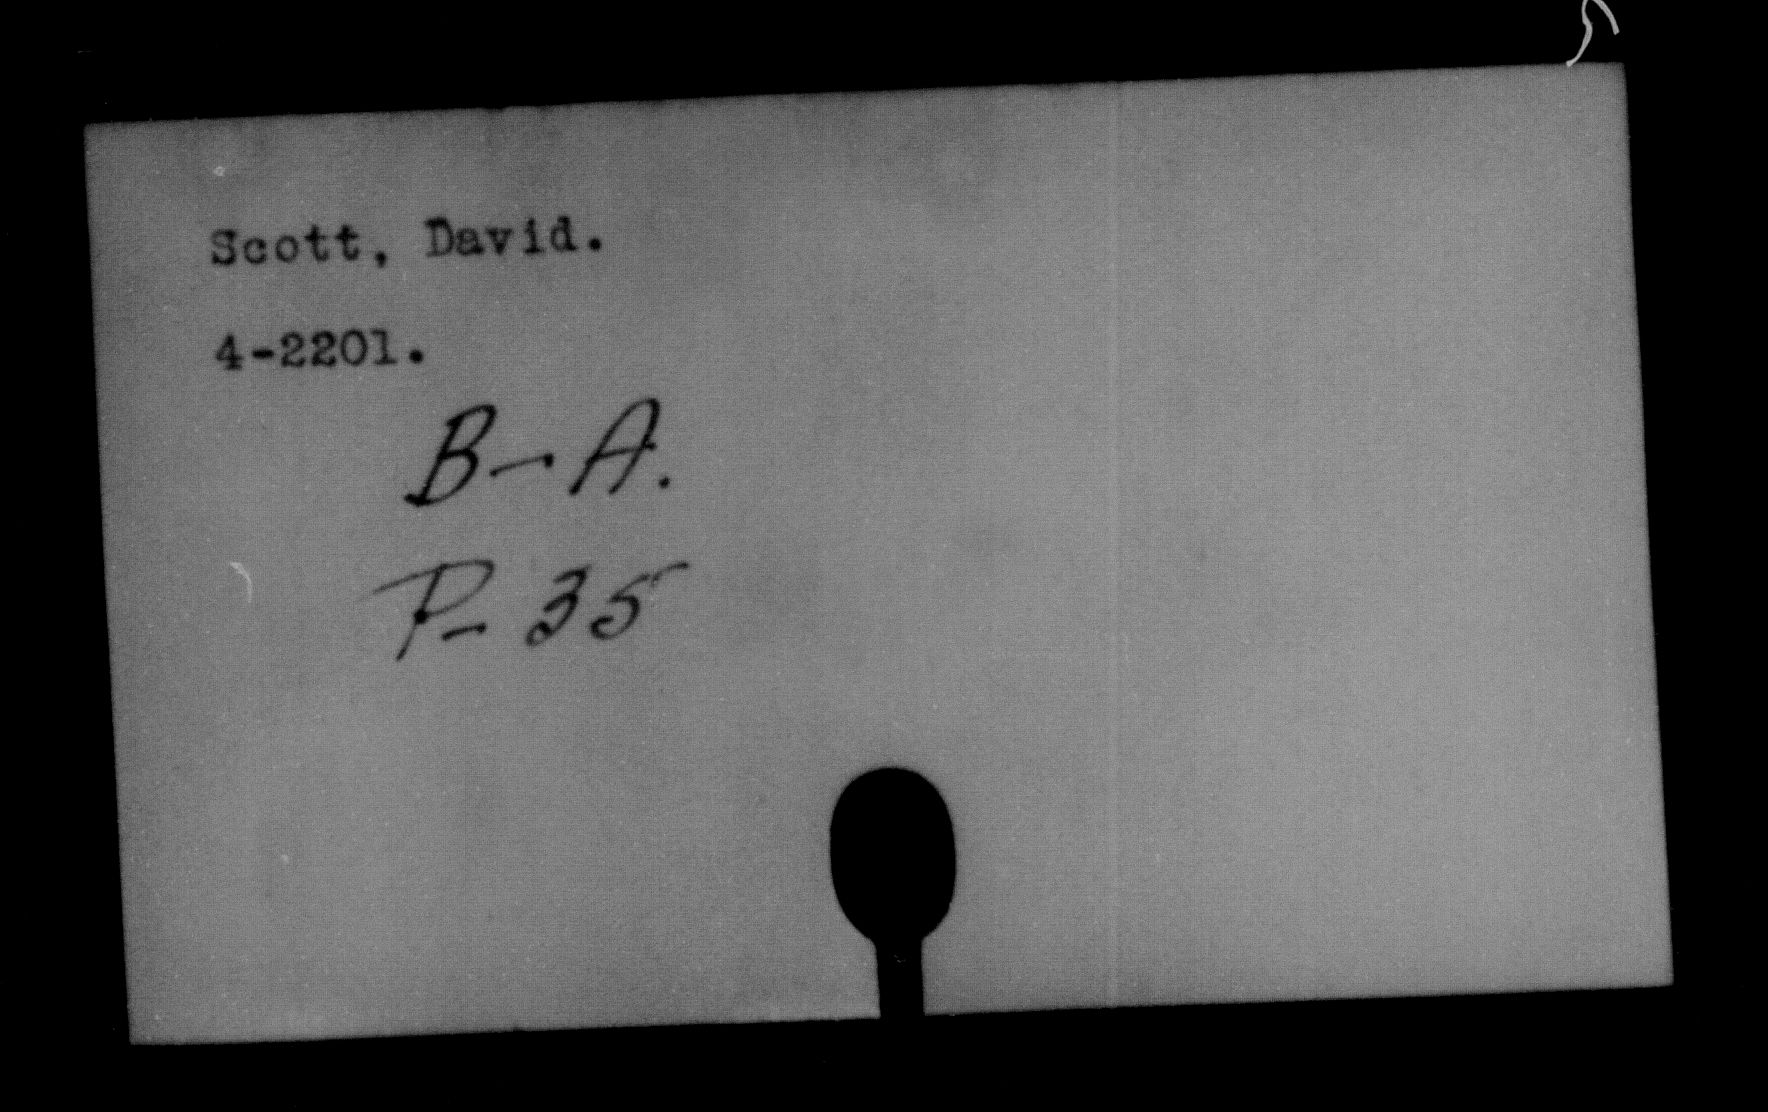 Scott, David.
4-2201.
B-A.
P- 35